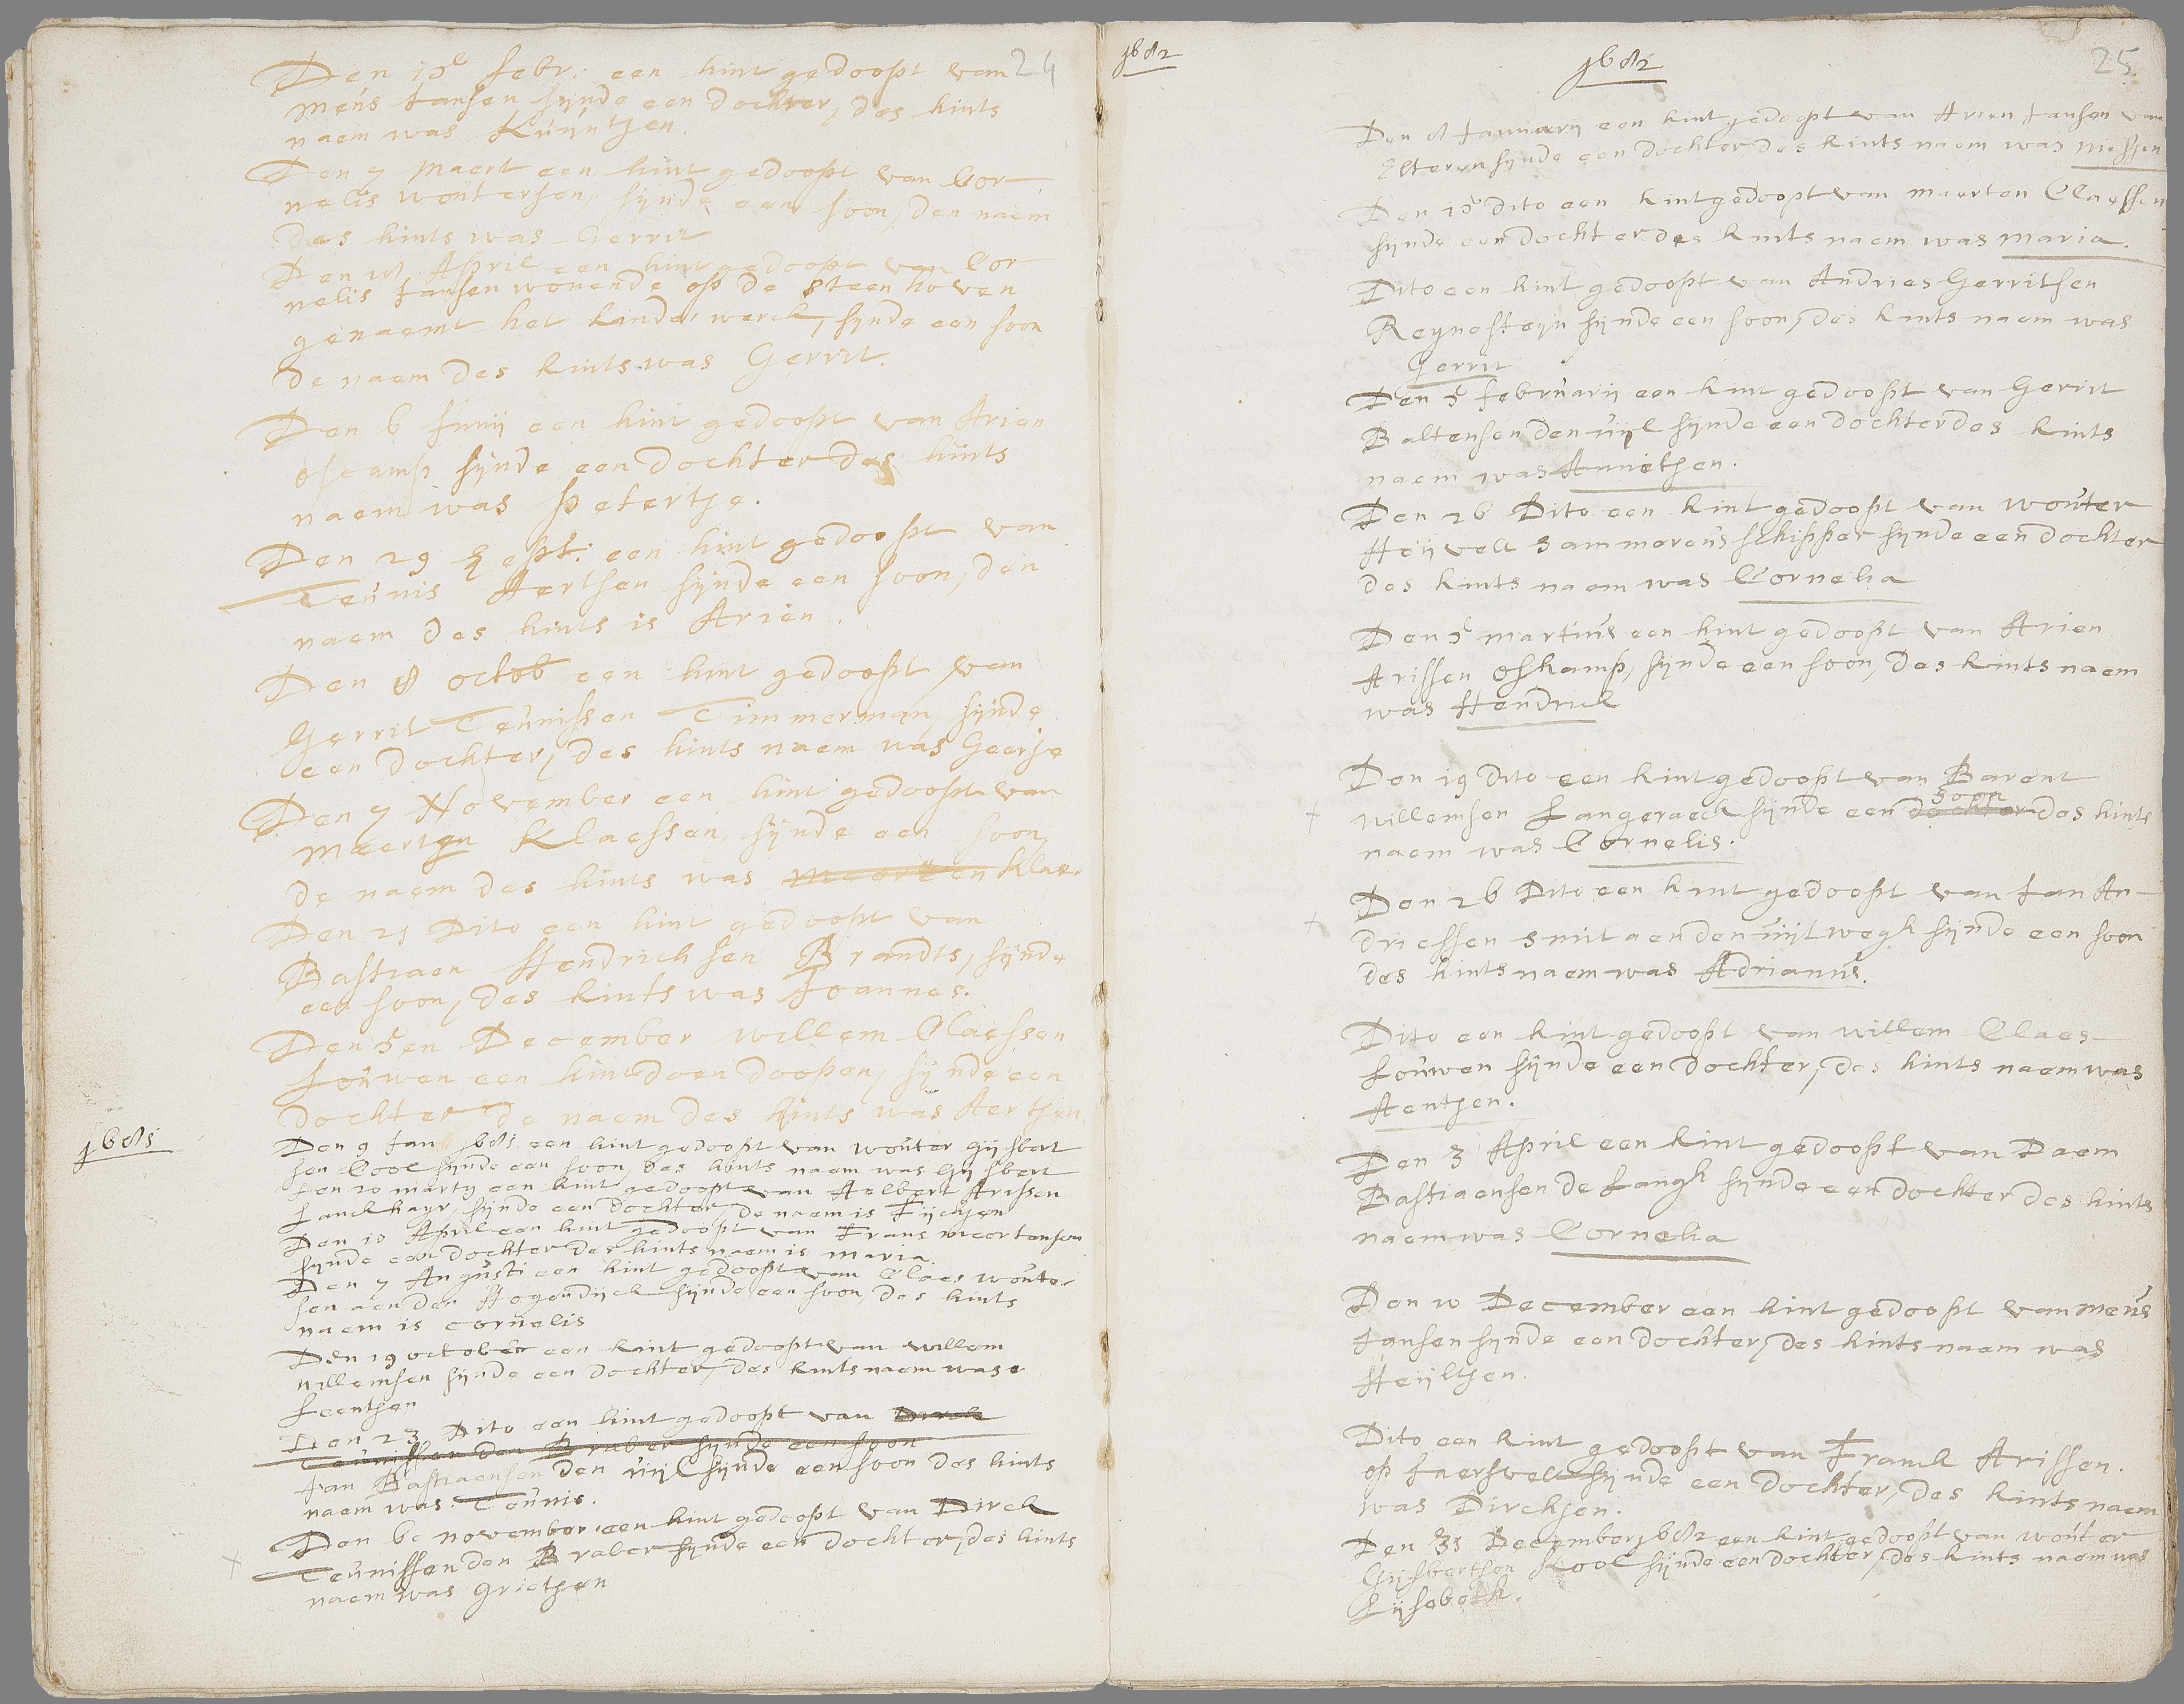 24
Den 15 febr: een kint gedoopt van
Meus Jansen sijnde een dochter, des kints
naem was Kuijntjen.
Den 7 Maert een kint gedoopt van Cor-
nelis woutersen, sijnde een soon, den naem
des kints was Gerrit
Den April een kint gedoopt van Cor-
nelis Jansen wonende op de steen hoven
genaemt het kinder werck, sijnde een soon
de naem des kints was Gerrit.
Den 6 Junij een kint gedoopt van Arien
oscamp sijnde een dochter des kints
naem was petertje.
Den 29 Sept: een kint gedoopt van
Teunis Aertsen sijnde een soon, den
naem des kints is Arien.
Den 8 octob een kint gedoopt van
Gerrit Teunissen Timmerman, sijnde
een dochter, des kints naem was Geerje
Den 7 November een kint gedoopt van
Maerten Klaessen, sijnde een soon,
de naem des kints was Maerten Klae
Den 21 Dito een kint gedoopt van
Bastiaen Hendrichsen Brandts, sijnde
een soon, des kints was Joannes.
Den 5en December willem Claessen
Louwen een kint doen doopen, sijnde een
dochter de naem des kints was Aertjen
1681
Den 9 Jan 1681 een kint gedoopt van wouter Gijsbert
sen Cool sijnde een soon, des kints naem was Gijsbert
Den 20 martij een kint gedoopt van Aelbert Arissen
Lanckhayr, sijnde een dochter, de naem is Fijchjen
Den 10 April een kint gedoopt van Frans meertensen
sijnde een dochter des kints naem is maria.
Den 7 Augusti een kint gedoopt van Claes woute-
sen aen den Hogendijck sijnde een soon, des kints
naem is cornelis
Den 19 october een kint gedoopt van willem
willemsen sijnde een dochter, des kints naem was
Leentjen
Den 23 Dito een kint gedoopt van Dirck
Teunissen den Braber sijnde een soon
Jan Bastiaensen den uijl sijnde een soon des kints
naem was Teunis.
Den 6e november een kint gedoopt van Dirck
Teunissen den Braber sijnde een dochter, des kints
naem was Grietjen
1682
1682
25.
Den 8 Januarij een kint gedoopt van Arien Jansen van
Elteren sijnde een dochter des kints naem was
Den 15 dito een kint gedoopt van maerten Claessen
sijnde een dochter des kints naem was maria.
Dito een kint gedoopt van Andries Gerritsen
Reynesteyn sijnde een soon, des kints naem was
Gerrit
Den 5 februarij een kint gedoopt van Gerrit
Baltensen den uijl sijnde een dochter des kints
naem was Annetjen.
Den 26 Dito een kint gedoopt van wouter
Heijvelt schipper sijnde een dochter
des kints naem was Cornelia
Den 5 martius een kint gedoopt van Arien
Arissen oskamp, sijnde een soon, des kints naem
was Hendrick
Den 19 dito een kint gedoopt van Barent
willemsen Langeraeck sijnde een dochter soon des kints
naem was Cornelis.
Den 26 Dito een kint gedoopt van Jan An-
driessen smit aen den uijtwegh sijnde een soon
des kints naem was Adrianus.
Dito een kint gedoopt van willem Claes-
Louwen sijnde een dochter, des kints naem was
Aentjen.
Den 3 April een kint gedoopt van Daem
Bastiaensen de Langh sijnde een dochter des kints
naem was Cornelia
Den 10 December een kint gedoopt van meus
Jansen sijnde een dochter, des kints naem was
Heijltjen.
Dito een kint gedoopt van Franck Arissen.
op Jaersvelt sijnde een dochter, des kints naem
was Dirckjen.
Den 31 December 1682 een kint gedoopt van wouter
Gijsbertsen Kool sijnde een dochter, des kints naem was
Lijsebeth.